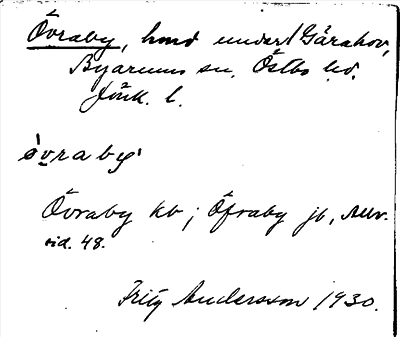 Övraby, hmd under Gärahov,
Byarums sn, Östbo hd,
Jönk. l.
òvraby
Övraby kb ; Öfraby jb,
sid. 48.
Fritz Andersson 1930.